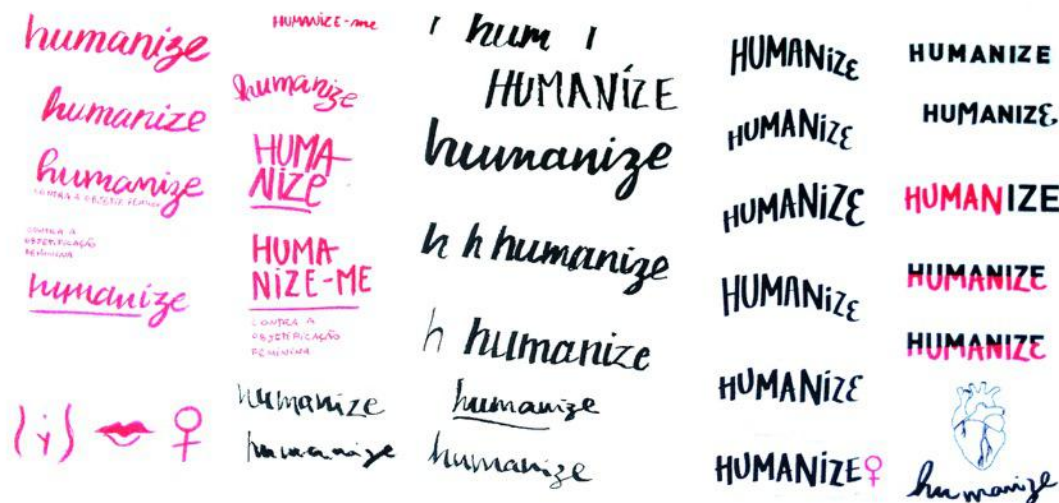 humanize
humanize
humanize
CONTRA A OBJETIF. FEMININA
CONTRA A
OBJETIFICAÇÃO
FEMININA
humanize
HUMANiZE-me
humanize
HUMA
NIZE
HUMA-
NIZE-ME
CONTRA A
OBJETIFICAÇÃO
FEMININA
humanize
humanize
hum
HUMANÍZE
humanize
h h humanize
h humanize
humanize
humanize
HUMANiZE
HUMANiZE
HUMANiZE
HUMANiZE
HUMANiZE
HUMANiZE♀
HUMANIZE
HUMANIZE
HUMANIZE
HUMANIZE
HUMANIZE
humanize